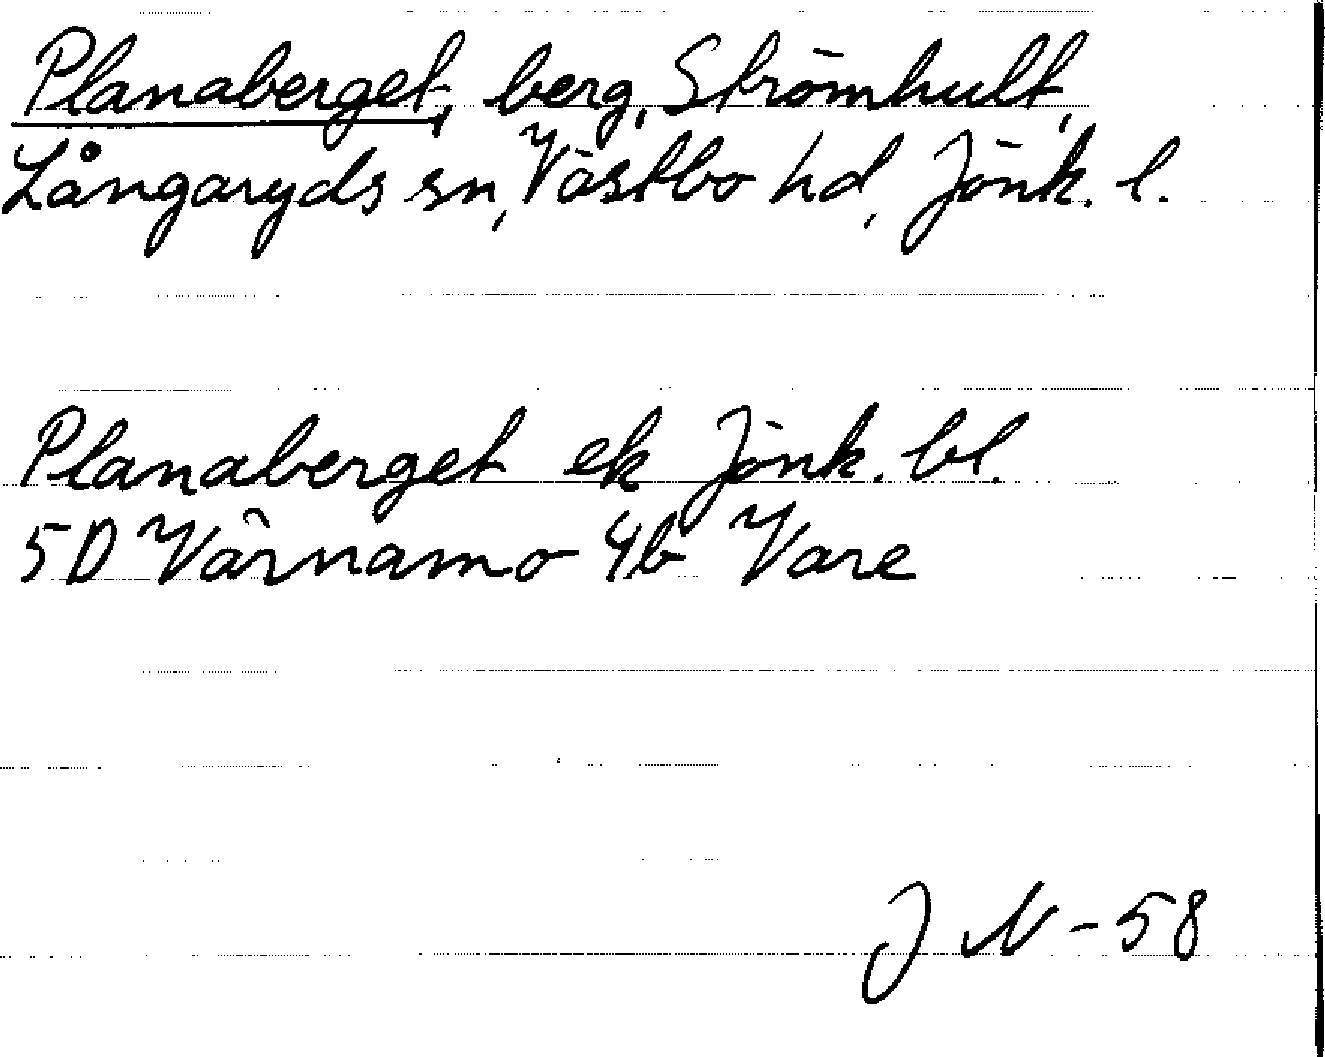 Planaberget, berg, Strömhult,
Långaryds sn, Västbo hd, Jönk. l.
Planaberget ek Jönk. bl.
5D Värnamo 4b Vare
J N - 58